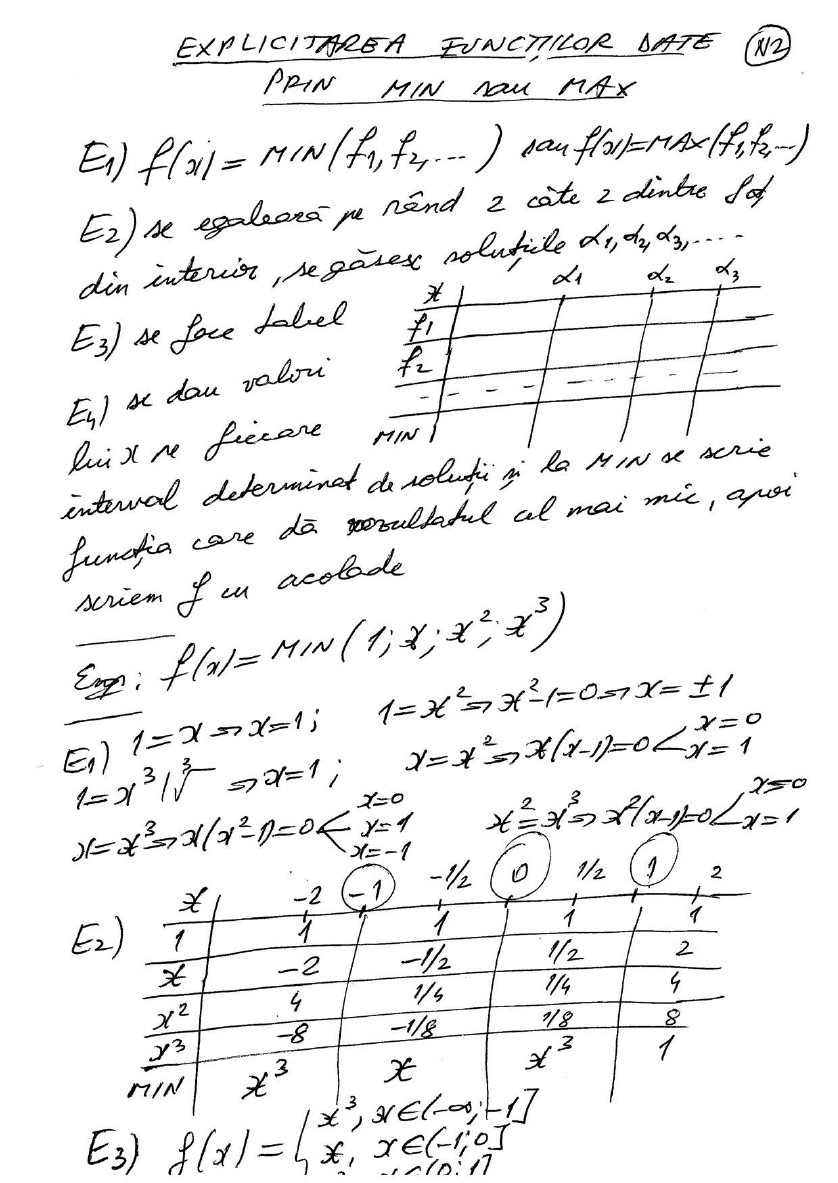 EXPLICITAREA FUNCȚIILOR DATE (N2)
PRIN MIN sau MAX
E1) f(x) = MIN(f1, f2, ...) sau f(x)=MAX(f1, f2, ...)
E2) se egalează pe rând 2 câte 2 dintre
din interior, se găsesc soluțiile α1, α2, α3, ....
x α1 α2 α3
E3) se face tabel
f1
f2
E4) se dau valori
lui x pe fiecare
MIN
interval determinat de soluții și la MIN se scrie
funcția care dă rezultatul cel mai mic, apoi
scriem f cu acolade
Exp: f(x) = MIN(1; x; x²; x³)
E1) 1=x ⇒ x=1; 1=x² ⇒ x²-1=0 ⇒ x=±1
1=x³ |∛ ⇒ x=1; x=x² ⇒ x(x-1)=0 < x=0 x=1
x=x³ ⇒ x(x²-1)=0 < x=0 x=1 x=-1 x²=x³ ⇒ x²(x-1)=0 < x=0 x=1
E2) x -2 -1 -1/2 0 1/2 1 2
1 1 1 1 1
x -2 -1/2 1/2 2
x² 4 1/4 1/4 4
x³ -8 -1/8 1/8 8
MIN x³ x x³ 1
E3) f(x) = { x³, x∈(-∞;-1]
x, x∈(-1;0]
x∈(0;1]